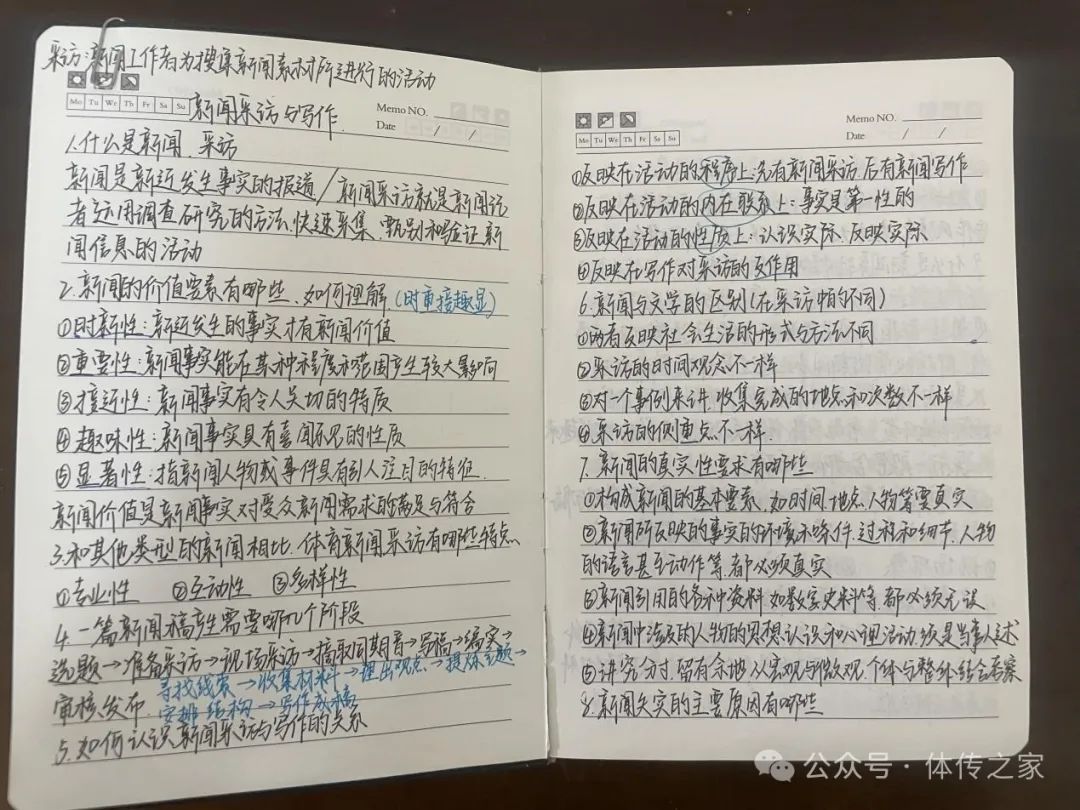 采访:新闻工作者为搜集新闻素材所进行的活动
Mo Tu We Th Fr Sa Su
新闻采访与写作.
Memo NO.
Date / /
1.什么是新闻、采访
新闻是新近发生事实的报道/新闻采访就是新闻记
者运用调查研究的方法、快速采集、甄别和验证新
闻信息的活动
2.新闻的价值要素有哪些、如何理解(时重接趣显)
①时新性:新近发生的事实才有新闻价值
②重要性:新闻事实能在某种程度和范围产生较大影响
③接近性:新闻事实有令人关切的特质
④趣味性:新闻事实具有喜闻乐见的性质
⑤显著性:指新闻人物或事件具有引人注目的特征.
新闻价值是新闻事实对受众新闻需求的满足与符合
3.和其他类型的新闻相比、体育新闻采访有哪些特点
①专业性 ②互动性 ③多样性
4.一篇新闻稿产生需要哪几个阶段
选题→准备采访→现场采访→摘取同期音→写稿→编实→
寻找线索→收集材料→理出观点→提炼主题→
审核发布.
安排结构→写作成稿
5.如何认识新闻采访与写作的关系
Mo Tu We Th Fr Sa Su
Memo NO.
Date / /
①反映在活动的程序上:先有新闻采访、后有新闻写作
②反映在活动的内在联系上:事实是第一性的
③反映在活动的性质上:认识实际、反映实际
④反映在写作对采访的反作用
6.新闻与文学的区别(在采访中的不同)
①两者反映社会生活的形式与方法不同
②采访的时间观念不一样
③对一个事例来讲、收集完成的地点和次数不一样
④采访的侧重点不一样.
7.新闻的真实性要求有哪些
①构成新闻的基本要素、如时间、地点、人物等要真实
②新闻所反映的事实的环境和条件、过程和细节、人物
的语言甚至动作等、都必须真实
③新闻引用的各种资料、如数字、史料等、都必须无误
④新闻中涉及的人物的思想认识和心理活动须是当事人述
⑤讲究分寸、留有余地、从宏观与微观、个体与整体结合考察
8.新闻失实的主要原因有哪些
公众号·体传之家